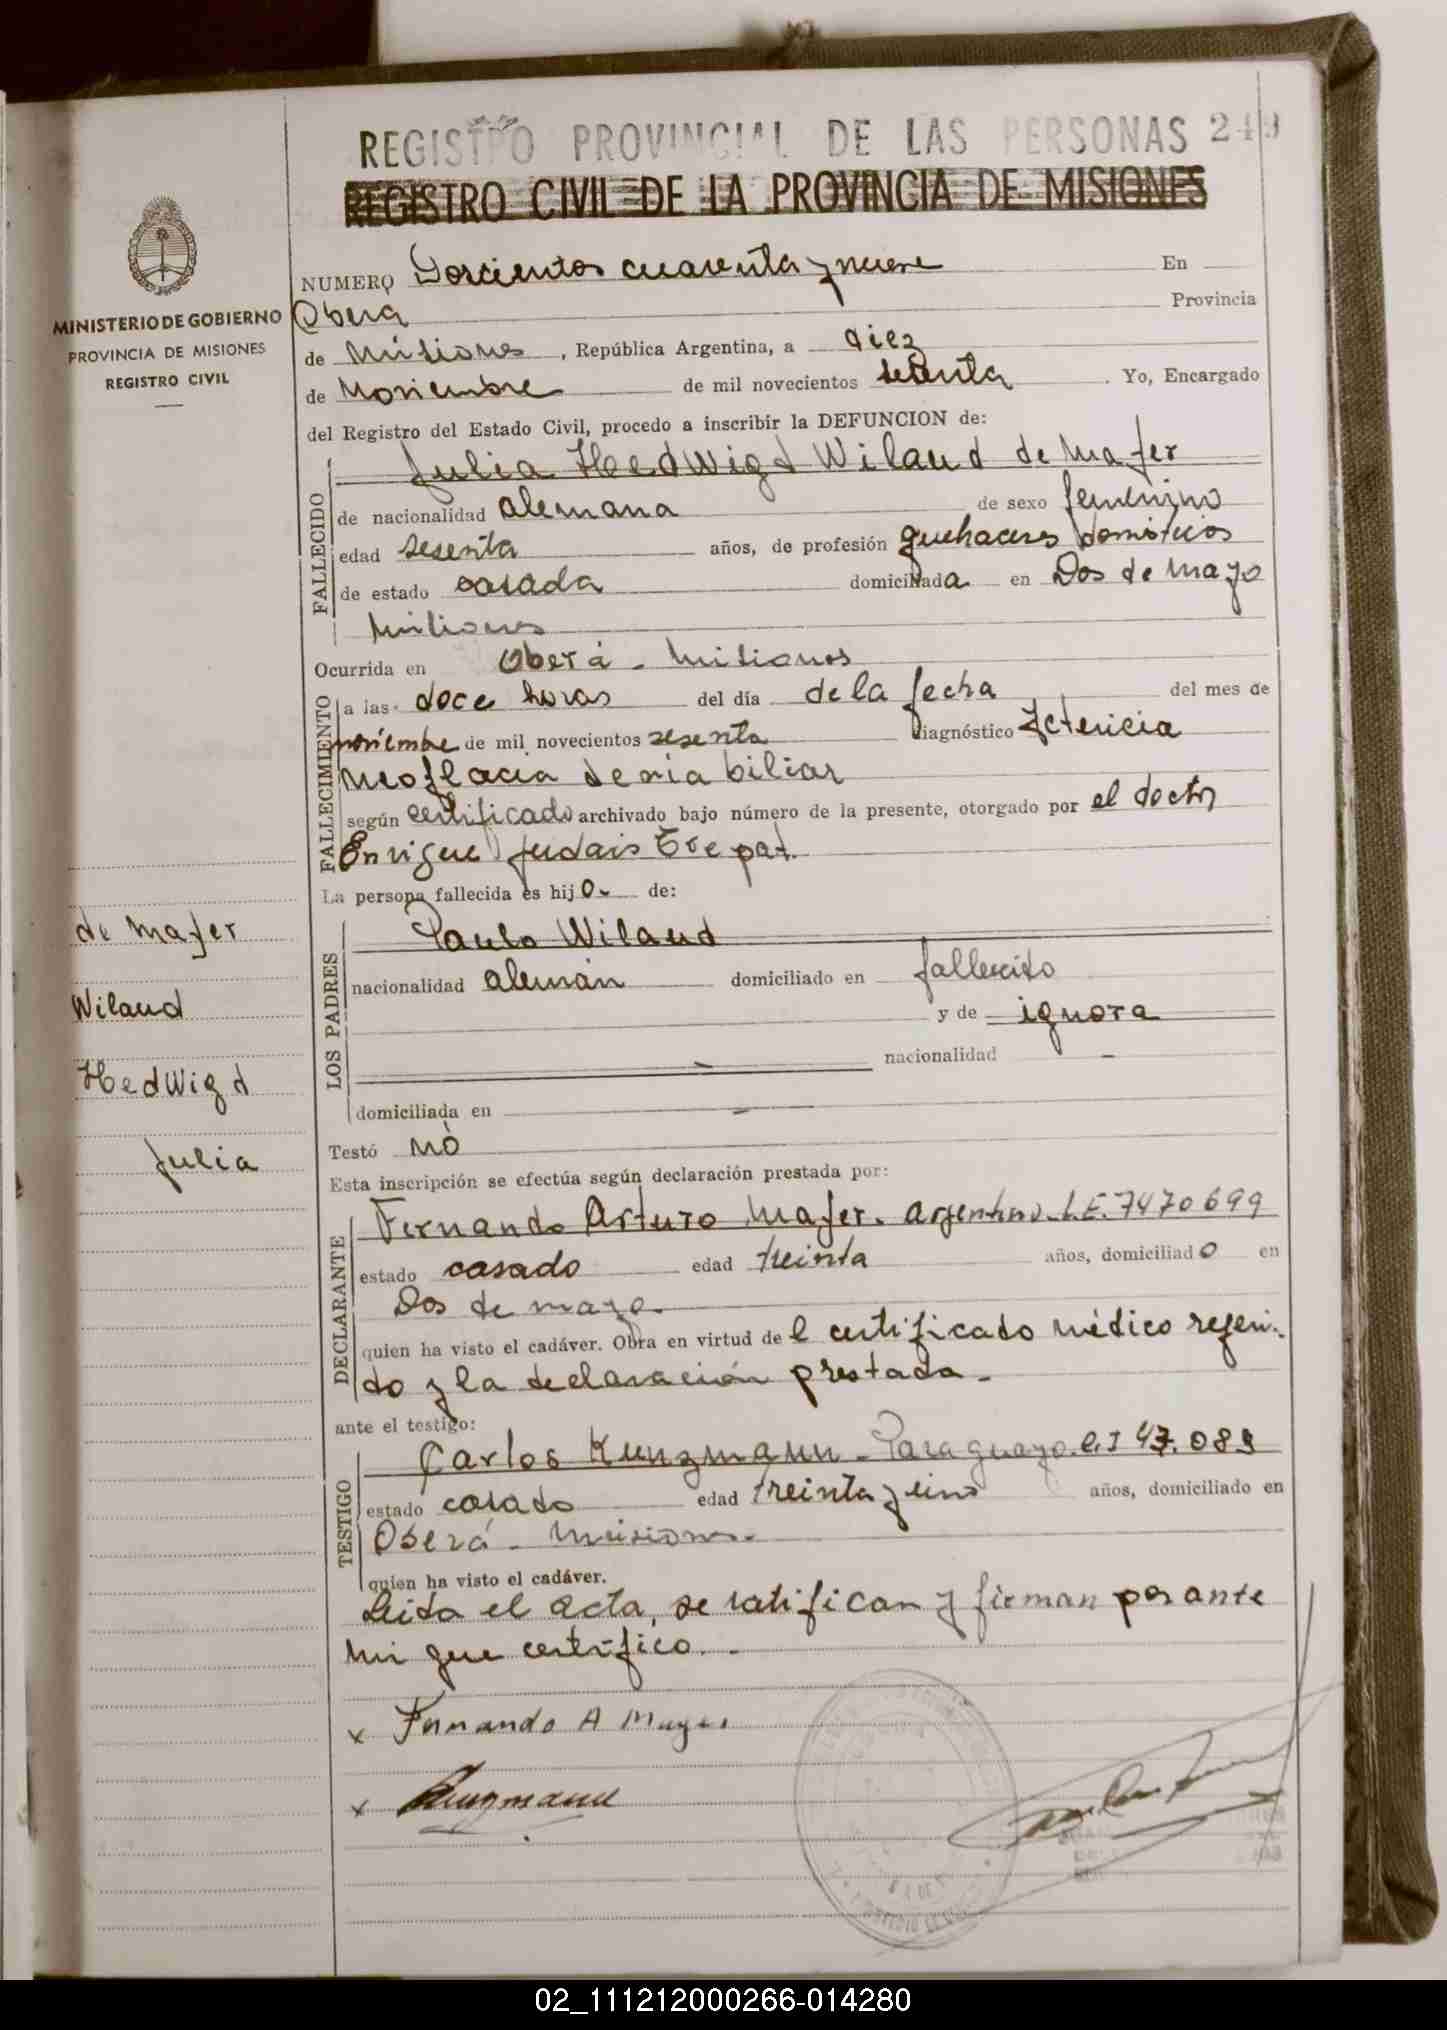 REGISTRO PROVINCIAL DE LAS PERSONAS 249
REGISTRO CIVIL DE LA PROVINCIA DE MISIONES
MINISTERIO DE GOBIERNO
PROVINCIA DE MISIONES
REGISTRO CIVIL
NUMERO Doscientos cuarenta y nueve En
Obera Provincia
de Misiones, República Argentina, a diez
de Noviembre de mil novecientos sesenta. Yo, Encargado
del Registro del Estado Civil, procedo a inscribir la DEFUNCION de:
FALLECIDO
Julia Hedwigd Wiland de Mayer
de nacionalidad alemana de sexo femenino
edad sesenta años, de profesión quehaceres domésticos
de estado casada domiciliada en Dos de Mayo
Misiones
Ocurrida en Oberá - Misiones
FALLECIMIENTO
a las doce horas del día de la fecha del mes de
noviembre de mil novecientos sesenta diagnóstico Ictericia
Neoplacia de via biliar
según certificado archivado bajo número de la presente, otorgado por el doctor
Enrique Judais
La persona fallecida es hijo- de:
LOS PADRES
Paulo Wiland
nacionalidad alemán domiciliado en fallecido
y de ignora
- nacionalidad -
domiciliada en -
Testó nó
Esta inscripción se efectúa según declaración prestada por:
DECLARANTE
Fernando Arturo Mayer. argentino. L.E. 7470699
estado casado edad treinta años, domiciliado en
Dos de mayo.
quien ha visto el cadáver. Obra en virtud del certificado médico referi-
do y la declaración prestada.-
ante el testigo:
TESTIGO
Carlos Kunzmann - Paraguayo. C.I 43.089
estado casado edad treinta y uno años, domiciliado en
Oberá - Misiones.
quien ha visto el cadáver.
Leida el acta, se ratifican y firman por ante
mi que certifico.-
x Fernando A Mayer
x Kunzmann
de Mayer
Wiland
Hedwigd
Julia
02_111212000266-014280